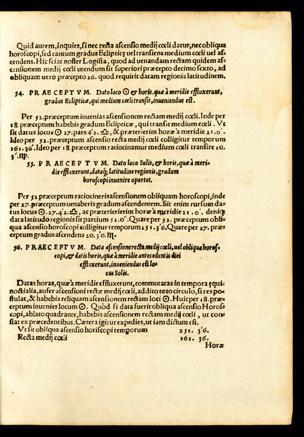 Quid autem, inquies, si nec recta ascensio medij cœli datur, nec obliqua
horoscopi, sed tantum gradus Eclipticę uel transiens medium cœli uel as-
cendens. Hic scias noster Logista, quod ad uenandam rectam quidem as-
censionem medij cœli utendum sit superiori præcepto decimo sexto, ad
obliquam uero præcepto 26. quod requirit datam regionis latitudinem.
54. PRAECEPTVM. Dato loco ☉ & horis, quæ à meridie effluxerunt,
gradus Eclipticæ, qui medium cœli transit, inueniendus est.
Per 52. præceptum inuenias ascensionem rectam medij cœli. Inde per
18. præceptum habebis gradum Eclipticæ, qui transit medium cœli. Vt
sit datus locus ☉ 27. pars 42. &, præterierint horæ à meridie 21. 0'.
Ideo per 52. præceptum ascensio recta medij cœli colligitur temporum
161. 36'. Ideo per 18. præceptum ratiocinamur medium cœli transire 10.
3'. ♍.
55. PRAECEPTVM. Dato loco Solis, & horis, quæ à meri-
die effluxerunt, dataq; latitudine regionis, gradum
horoscopi inuenire oportet.
Per 53. præceptum ratiocineris ascensionem obliquam horoscopi, inde
per 27. præceptum uenaberis gradum ascendentem. Sit enim rursum da-
tus locus ☉ 27. 42. &, præterierint horæ à meridie 21. 0'. denicq;
data latitudo regionis sit partium 51. 0'. Quare per 52. præceptum obli-
qua ascensio horoscopi colligitur temporum 251. 36'. Quare per 27. præ-
ceptum gradus ascendens 20.
56. PRAECEPTVM. Data ascensione rectæ medij cœli, uel obliqua horos-
copi, & datis horis, quæ à meridie antecedentis diei
effluxerunt, inueniendus est lo-
cus Solis.
Datas horas, quæ à meridie effluxerunt, commutaras in tempora equi-
noctialia, aufer ab ascensione rectæ medij cœli, addito toto circulo, si res po-
stulat, & habebis reliquam ascensionem rectam loci ☉. Huic per 18. præ-
ceptum inuenies locum ☉. Quod si data fuerit obliqua ascensio Horos-
copi, ablato quadrante, habebis ascensionem rectam medij cœli, ut con-
stat ex præcedentibus. Cætera igitur expedies, ut iam dictum est.
Vt sit obliqua ascensio horoscopi temporum 251. 36.
Recta medij cœli 161. 36.
Horæ